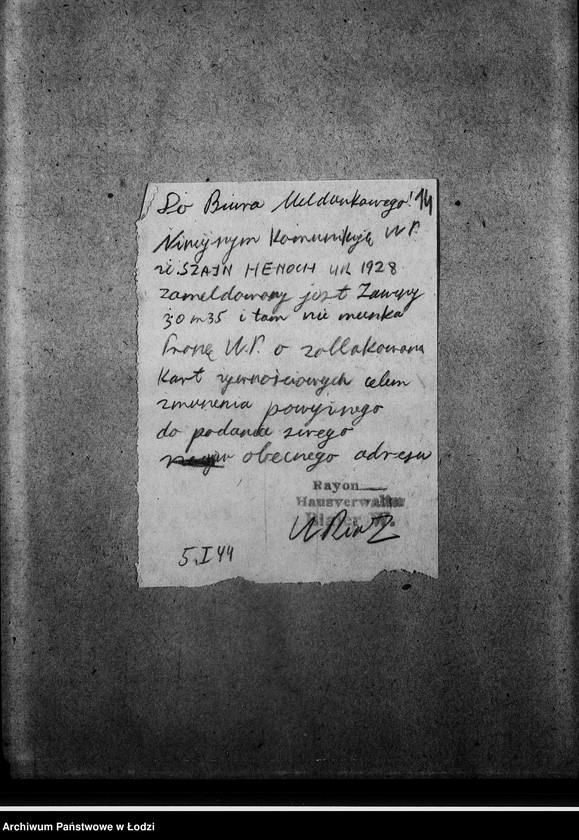 Do Biura Meldunkowego! 14
Niniejszym Komunikuję W.P.
że SZAJN HENOCH UR 1928
zameldowany jest Zawiszy
30 m 35 i tam nie mieszka
Proszę W.P. o zablokowanie
Kart żywnościowych celem
zmuszenia powyższego
do podania swego
obecnego adresu
Rayon
Hausverwalter
5.I 44
Archiwum Państwowe w Łodzi